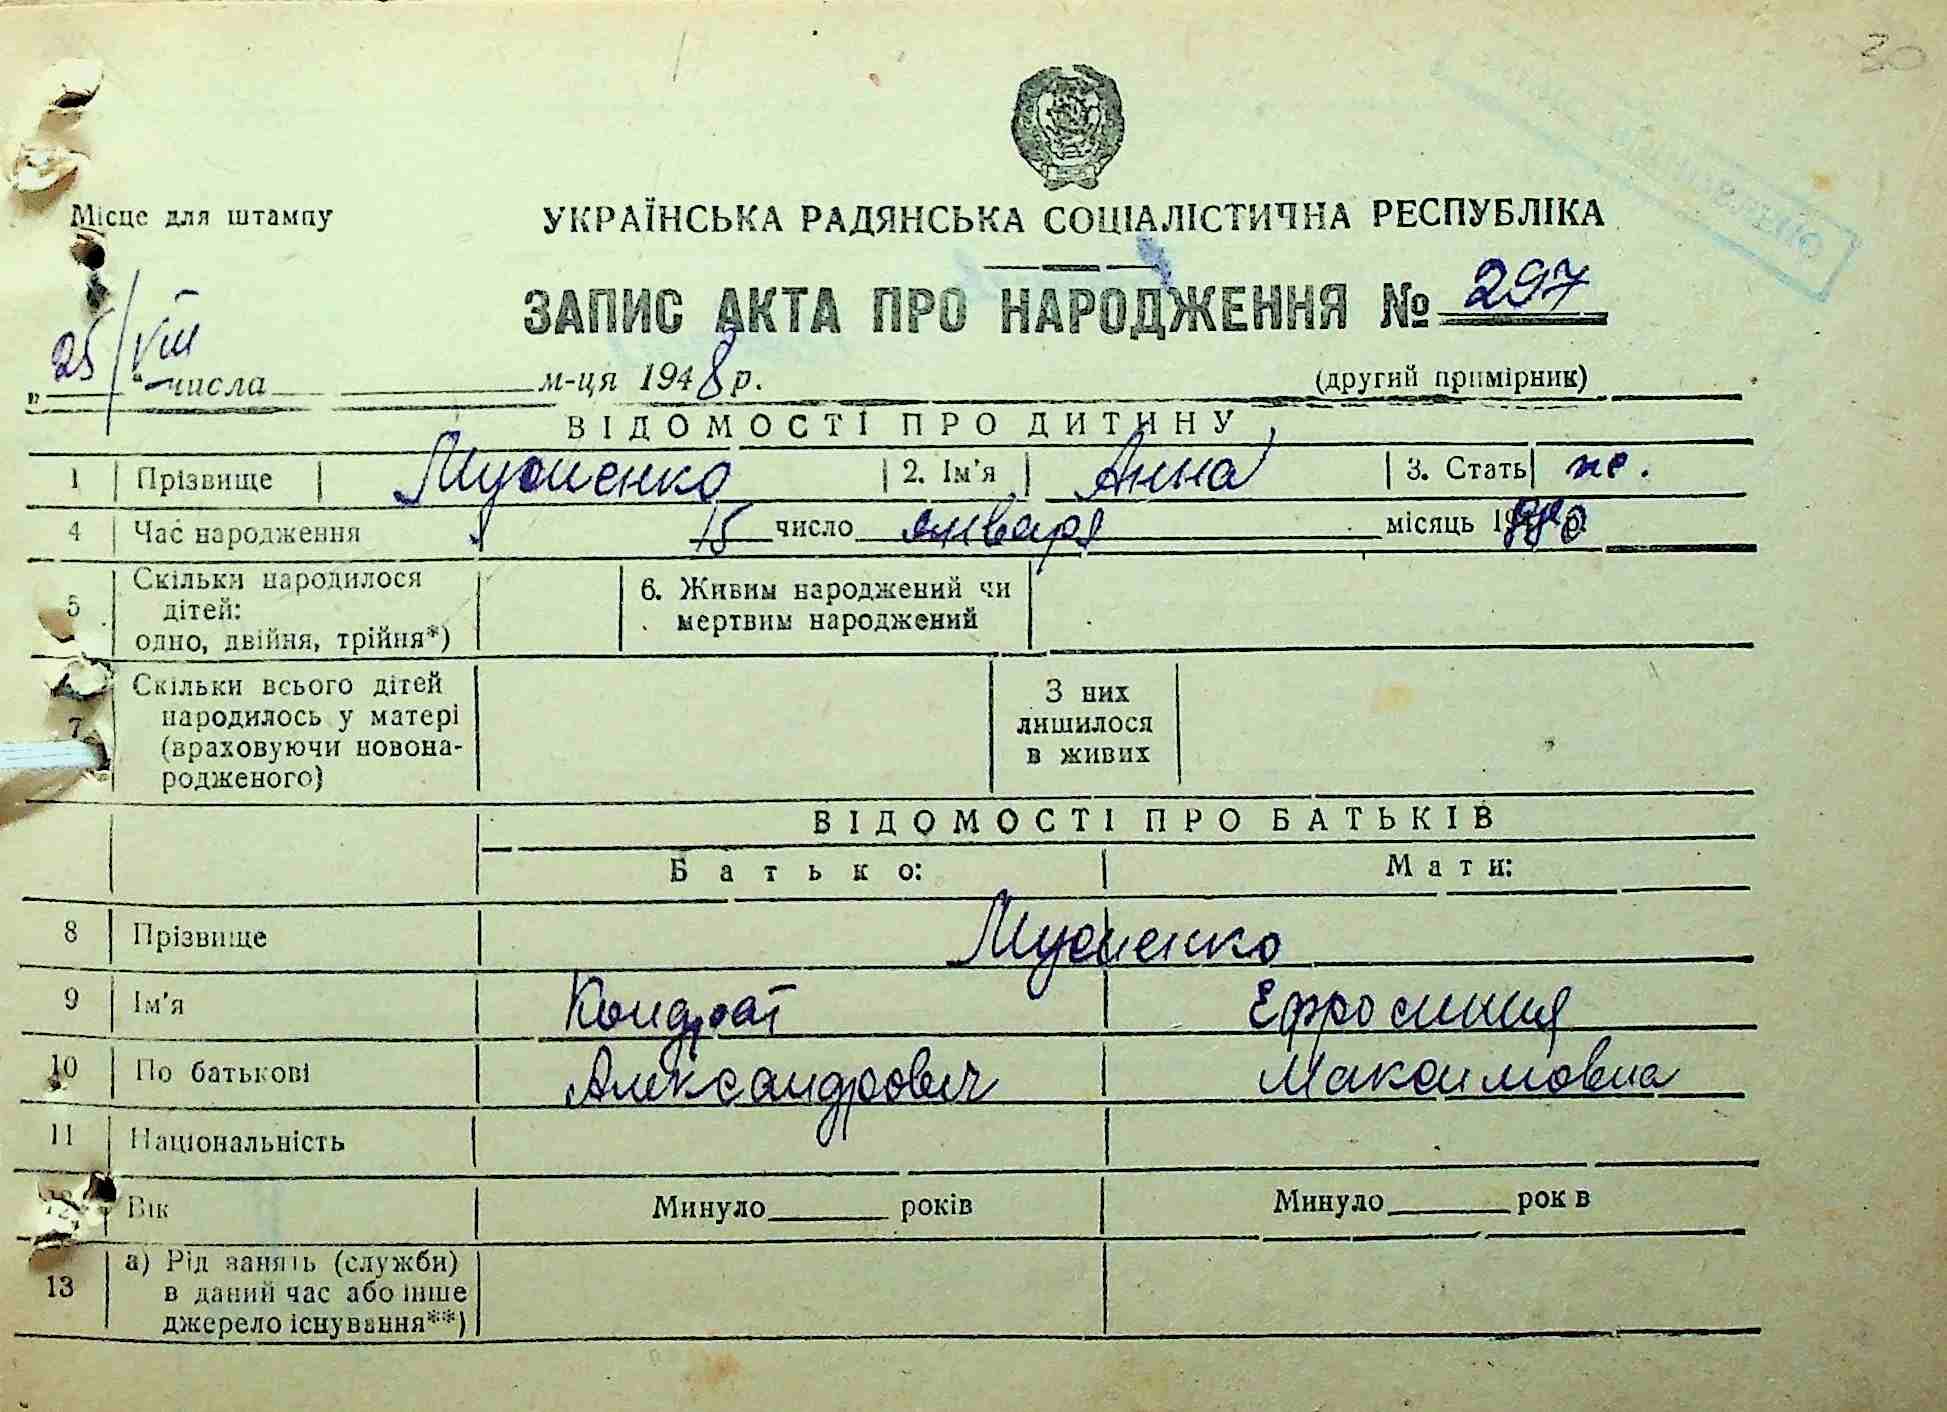 30
Місце для штампу
УКРАЇНСЬКА РАДЯНСЬКА СОЦІАЛІСТИЧНА РЕСПУБЛІКА
ЗАПИС АКТА ПРО НАРОДЖЕННЯ № 297
„25/VIII“ числа м-ця 1948 р. (другий примірник)
ВІДОМОСТІ ПРО ДИТИНУ
1 Прізвище Мусиенко 2. Ім'я Анна 3. Стать ж.
4 Час народження 15 число января місяць
5 Скільки народилося дітей: одно, двійня, трійня*) 6. Живим народжений чи мертвим народжений
7 Скільки всього дітей народилось у матері (враховуючи новонародженого) З них лишилося в живих
ВІДОМОСТІ ПРО БАТЬКІВ
Батько: Мати:
8 Прізвище Мусиенко
9 Ім'я Кондрат Ефросиния
10 По батькові Александрович Максимовна
11 Національність
12 Вік Минуло років Минуло рок в
13 а) Рід занять (служби) в даний час або інше джерело існування**)